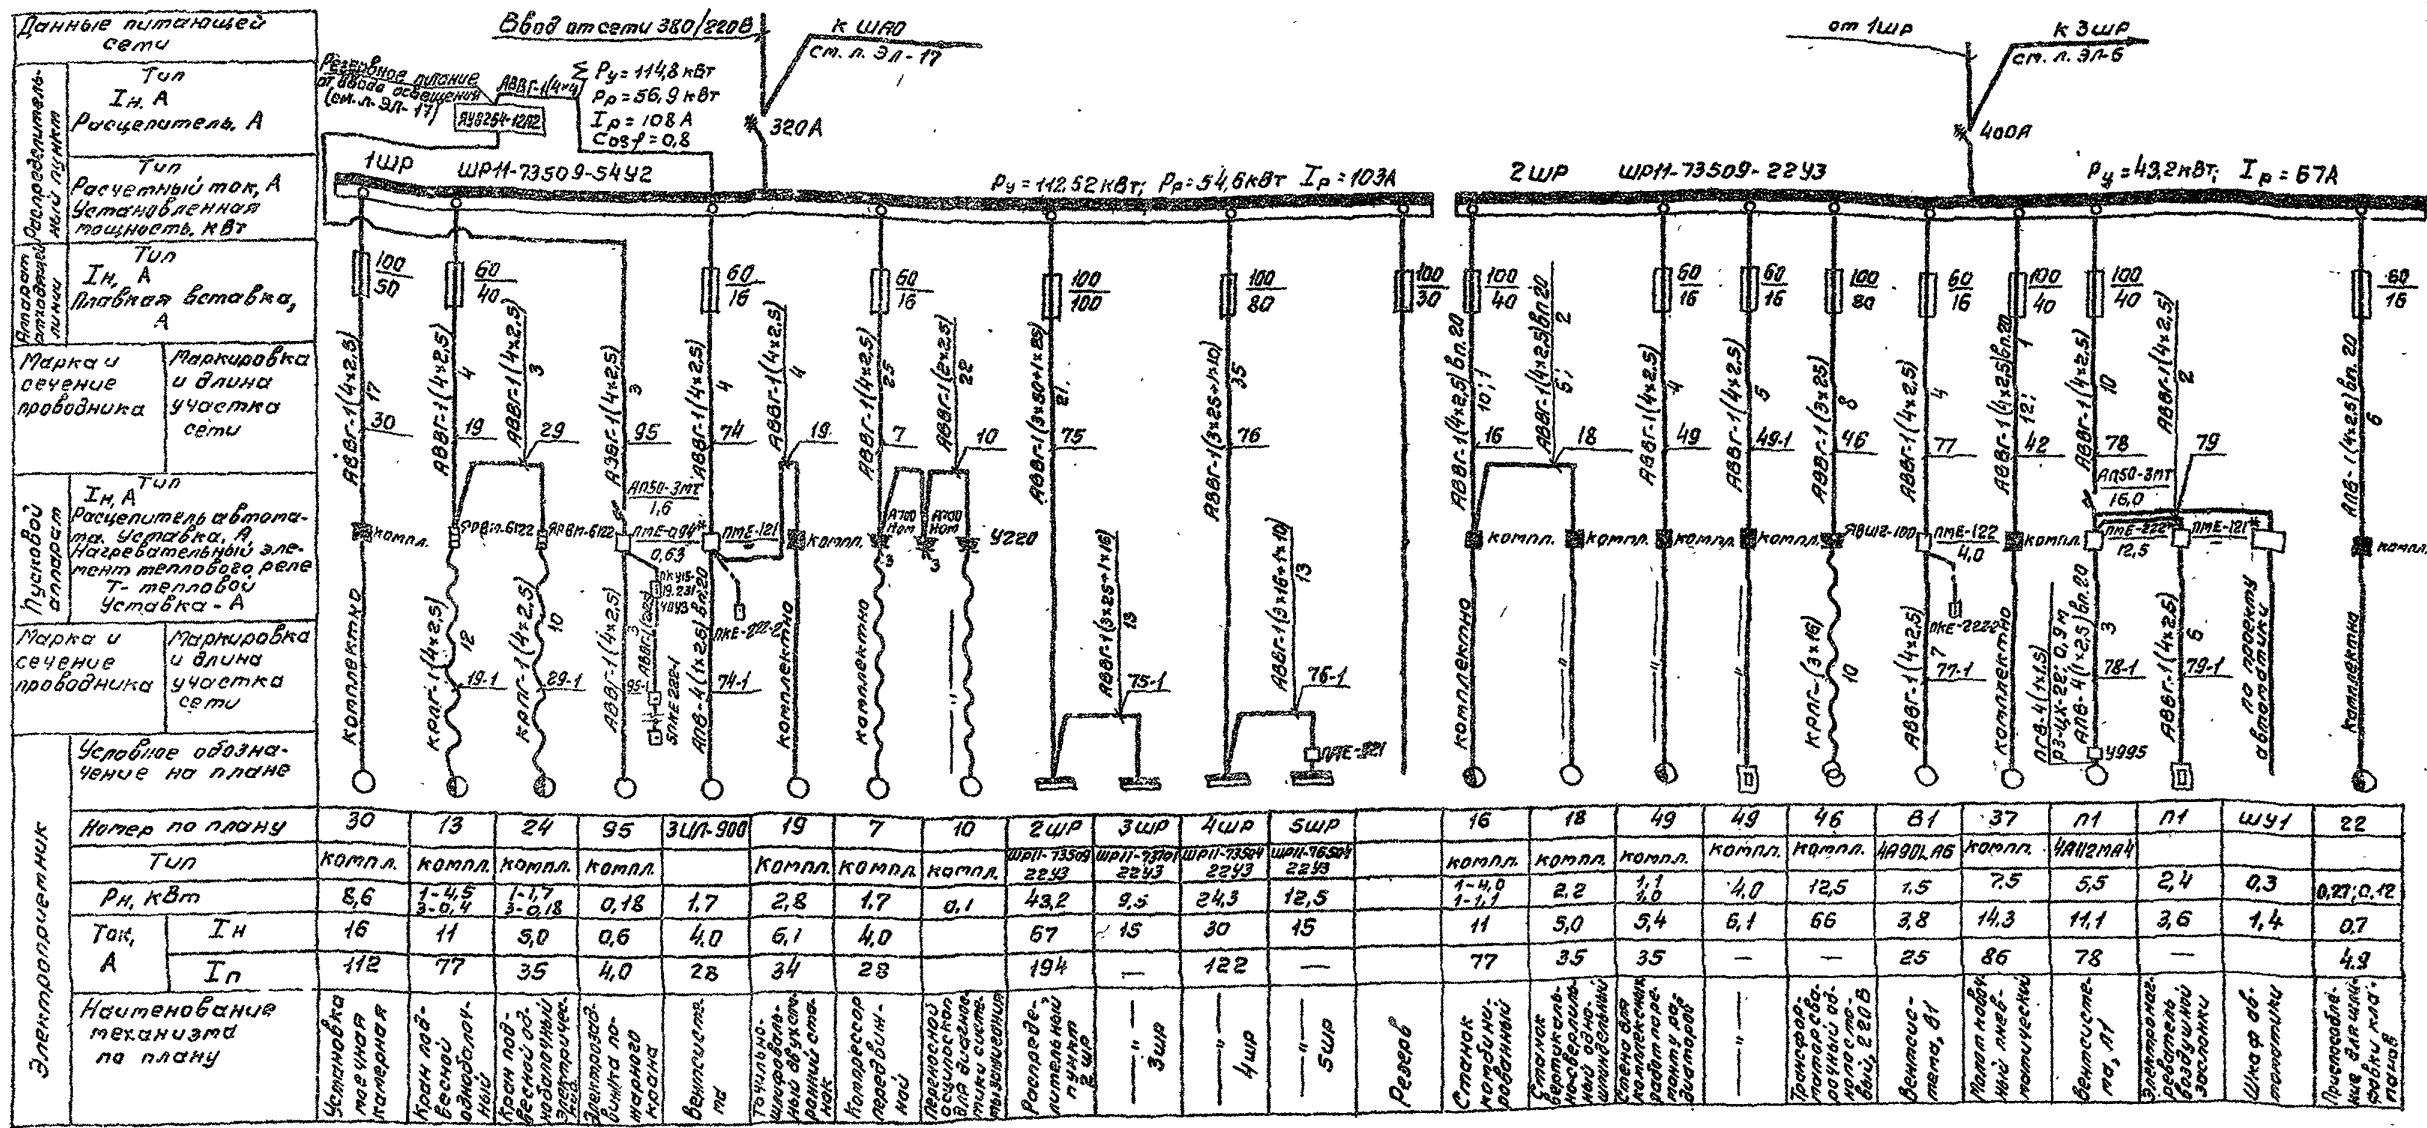 Данные питающей
сети
Распределитель-
ный пункт
Тип
Iн, А
Расцепитель, А
Тип
Расчетный ток, А
Установленная
мощность, кВт
Аппарат
отходящей
линии
Тип
Iн, А
Плавкая вставка,
А
Марка и
сечение
проводника
Маркировка
и длина
участка
сети
Пусковой
аппарат
Тип
Iн, А
Расцепитель автома-
та. Уставка, А
Нагревательный эле-
мент теплового реле
Т- тепловой
Уставка - А
Марка и
сечение
проводника
Маркировка
и длина
участка
сети
Электроприемник
Условное обозна-
чение на плане
Номер по плану
Тип
Рн, кВт
Ток,
А
Iн
Iп
Наименование
механизма
по плану
Ввод от сети 380/220В
к ЩАО
см. л. ЭЛ-17
Резервное питание
от ввода освещения
(см. л. ЭЛ-17)
АВВГ-1(4×4)
Σ Ру=114,8 кВт
Рр=56,9 кВт
Iр=108 А
Cosφ=0,8
320А
1ШР ШР11-73509-54У2
Ру=112.52кВт; Рр=54,6кВт Iр=103А
от 1ШР
к 3ШР
см. л. ЭЛ-6
400А
2ШР ШР11-73509-22У3
Ру=43,2кВт; Iр=67А
100 60 60 60 100 100 100
50 40 16 16 100 80 30
100 60 60 100 60 100 100 60
40 16 16 80 16 40 40 16
АВВГ-1(4×2,5) 17
30
АВВГ-1(4×2,5) 4
19
АВВГ-1(4×2,5) 3
29
АВВГ-1(4×2,5) 3
95
АВВГ-1(4×2,5) 4
74
АВВГ-1(4×2,5) 4
19
АВВГ-1(4×2,5) 25
7
АВВГ-1(2×2,5) 22
10
АВВГ-1(3×50+1×25) 21.
75
АВВГ-1(3×25+1×10) 35
76
АВВГ-1(4×2,5) вп.20 10; 1
16
АВВГ-1(4×2,5) вп 20 5; 2
18
АВВГ-1(4×2,5) 4
49
АВВГ-1(4×2,5) 5
49-1
АВВГ-1(3×25) 8
46
АВВГ-1(4×2,5) 4
77
АВВГ-1(4×2,5) вп.20 12; 1
42
АВВГ-1(4×2,5) 10
78
АВВГ-1(4×2,5) 2
79
АПВ-1(4×2,5) вп. 20 6
компл. ЯРВП-6122 ЯРВП-6122
АП50-3МТ
1,6
ПМЕ-094
0,63
ПМЕ-121
компл.
А700
ном
3
А700
ном
3
У220
компл. компл. компл. компл. ЯВШ2-100
ПМЕ-122
4,0
компл.
АП50-3МТ
16,0
ПМЕ-222
12,5
ПМЕ-121
компл.
комплектно
КРПГ-1(4×2,5) 12
19-1
КРПГ-1(4×2,5) 10
29-1
АВВГ-1(4×2,5) 3
95-1
5ПКЕ222-1
АПВ-4(1×2,5) вп.20
74-1
ПКЕ-222-2
комплектно
комплектно
— " —
АВВГ-1(3×25+1×16) 13
75-1
АВВГ-1(3×16+1×10) 13
76-1
ПМЕ-221
комплектно
— " —
— " —
— " —
КРПГ-(3×16) 10
АВВГ-1(4×2,5) 7
77-1
ПКЕ-2222
комплектно
ПГВ-4(1×1,5)
РЗ-ЦХ-22; 0,9 м
АПВ-4(1×2,5) вп. 20 3
78-1
У995
АВВГ-1(4×2,5) 6
79-1
по проекту
автоматики
комплектно
30 13 24 95 3ИЛ-900 19 7 10 2ШР 3ШР 4ШР 5ШР 16 18 49 49 46 В1 37 П1 П1 ШУ1 22
компл. компл. компл. компл. компл. компл. компл. ШР11-73509 22У3 ШР11-73701 22У3 ШР11-73504 22У3 ШР11-76504 22У3 компл. компл. компл. компл. компл. 4А90LA6 компл. 4А112МА4
8,6 1-4,5 3-0,4 1-1,7 3-0,18 0,18 1.7 2,8 1.7 0,1 43,2 9,5 24,3 12,5 1-4,0 1-1,1 2.2 1,1 1,0 4.0 12,5 1.5 7.5 5,5 2,4 0,3 0,27; 0,12
16 11 5,0 0,6 4.0 6,1 4,0 67 15 30 15 11 5,0 5,4 6,1 66 3,8 14.3 11,1 3,6 1,4 0.7
112 77 35 4,0 28 34 28 194 — 122 — 77 35 35 — — 25 86 78 — 4.9
Установка
моечная
камерная
Кран под-
весной
однобалоч-
ный
Кран под-
весной од-
нобалочный
электричес-
кий
Электрозад-
вижка по-
жарного
крана
Вентсисте-
ма
Точильно-
шлифоваль-
ный двухсто-
ронний ста-
нок
Компрессор
передвиж-
ной
Переносной
осциллоскоп
для диагнос-
тики систе-
мы зажигания
Распреде-
лительный
пункт
2 ШР
— " —
3ШР
— " —
4ШР
— " —
5ШР
Резерв
Станок
комбини-
рованный
Станок
вертикаль-
но-сверлиль-
ный одно-
шпиндельный
Стенд для
комплексных
работ по ре-
монту ра-
диаторов
— " —
Трансфор-
матор сва-
рочный од-
нопосто-
вый, 220 В
Вентсис-
тема, В1
Молот ковоч-
ный пнев-
матический
Вентсисте-
ма, П1
Электронаг-
реватель
воздушной
заслонки
Шкаф ав-
томатики
Приспособле-
ние для шли-
фовки кла-
панов